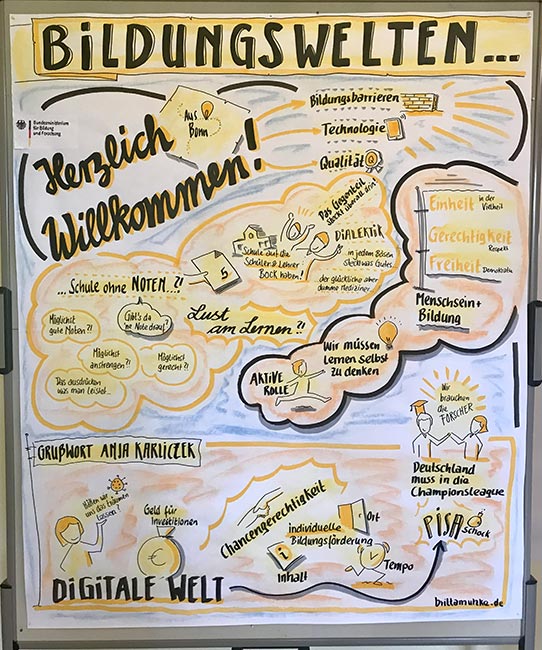 BILDUNGSWELTEN...
Bundesministerium
für Bildung
und Forschung
Herzlich
Willkommen!
Aus
Bonn
Bildungsbarrieren
Technologie
Qualität
Q
Das Gegenteil
steckt überall drin!
DIALEKTIK
in jedem Bösen
steckt was Gutes
...der glückliche aber
dumme Mediziner
Schule auf die
Schüler & Lehrer
Bock haben!
5
Einheit in der
Vielheit
Gerechtigkeit
Respekt
Freiheit
Demokratie
Menschsein +
Bildung
...Schule ohne NOTEN...?!
Gibt's da
'ne Note drauf?
Möglichst
gute Noten?!
Möglichst
anstrengen?!
Möglichst
gerecht?!
Das ausdrücken
was man leistet...
Lust
am Lernen?!
Wir müssen
lernen selbst
zu denken
AKTIVE
ROLLE
Wir
brauchen
die
FORSCHER
Deutschland
muss in die
Championsleague
PISA
Schock
GRUßWORT ANJA KARLICZEK
Hätten wir
uns das träumen
lassen?
Geld für
Investitionen
€
Chancengerechtigkeit
Ort
individuelle
Bildungsförderung
i
Inhalt
Tempo
DIGITALE WELT
brittamutzke.de